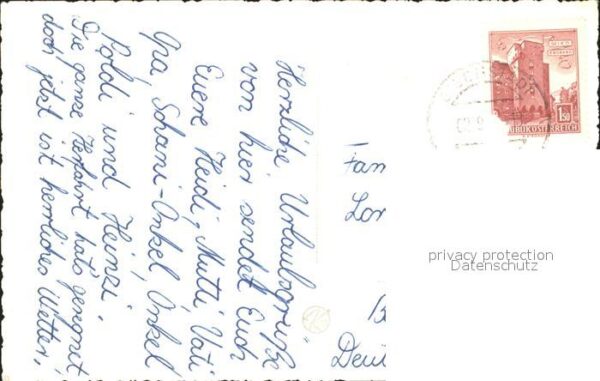 Herzliche Urlaubsgrüße
von hier sendet Euch
Euere Heidi, Mutti, Vati
Opa, Schani-Onkel, Onkel
Poldi und Heinzi.
Die ganze Herfahrt hat's geregnet
doch jetzt ist herrliches Wetter.
Fam
Lor
Deu
1.50
REPUBLIK ÖSTERREICH
privacy protection
Datenschutz